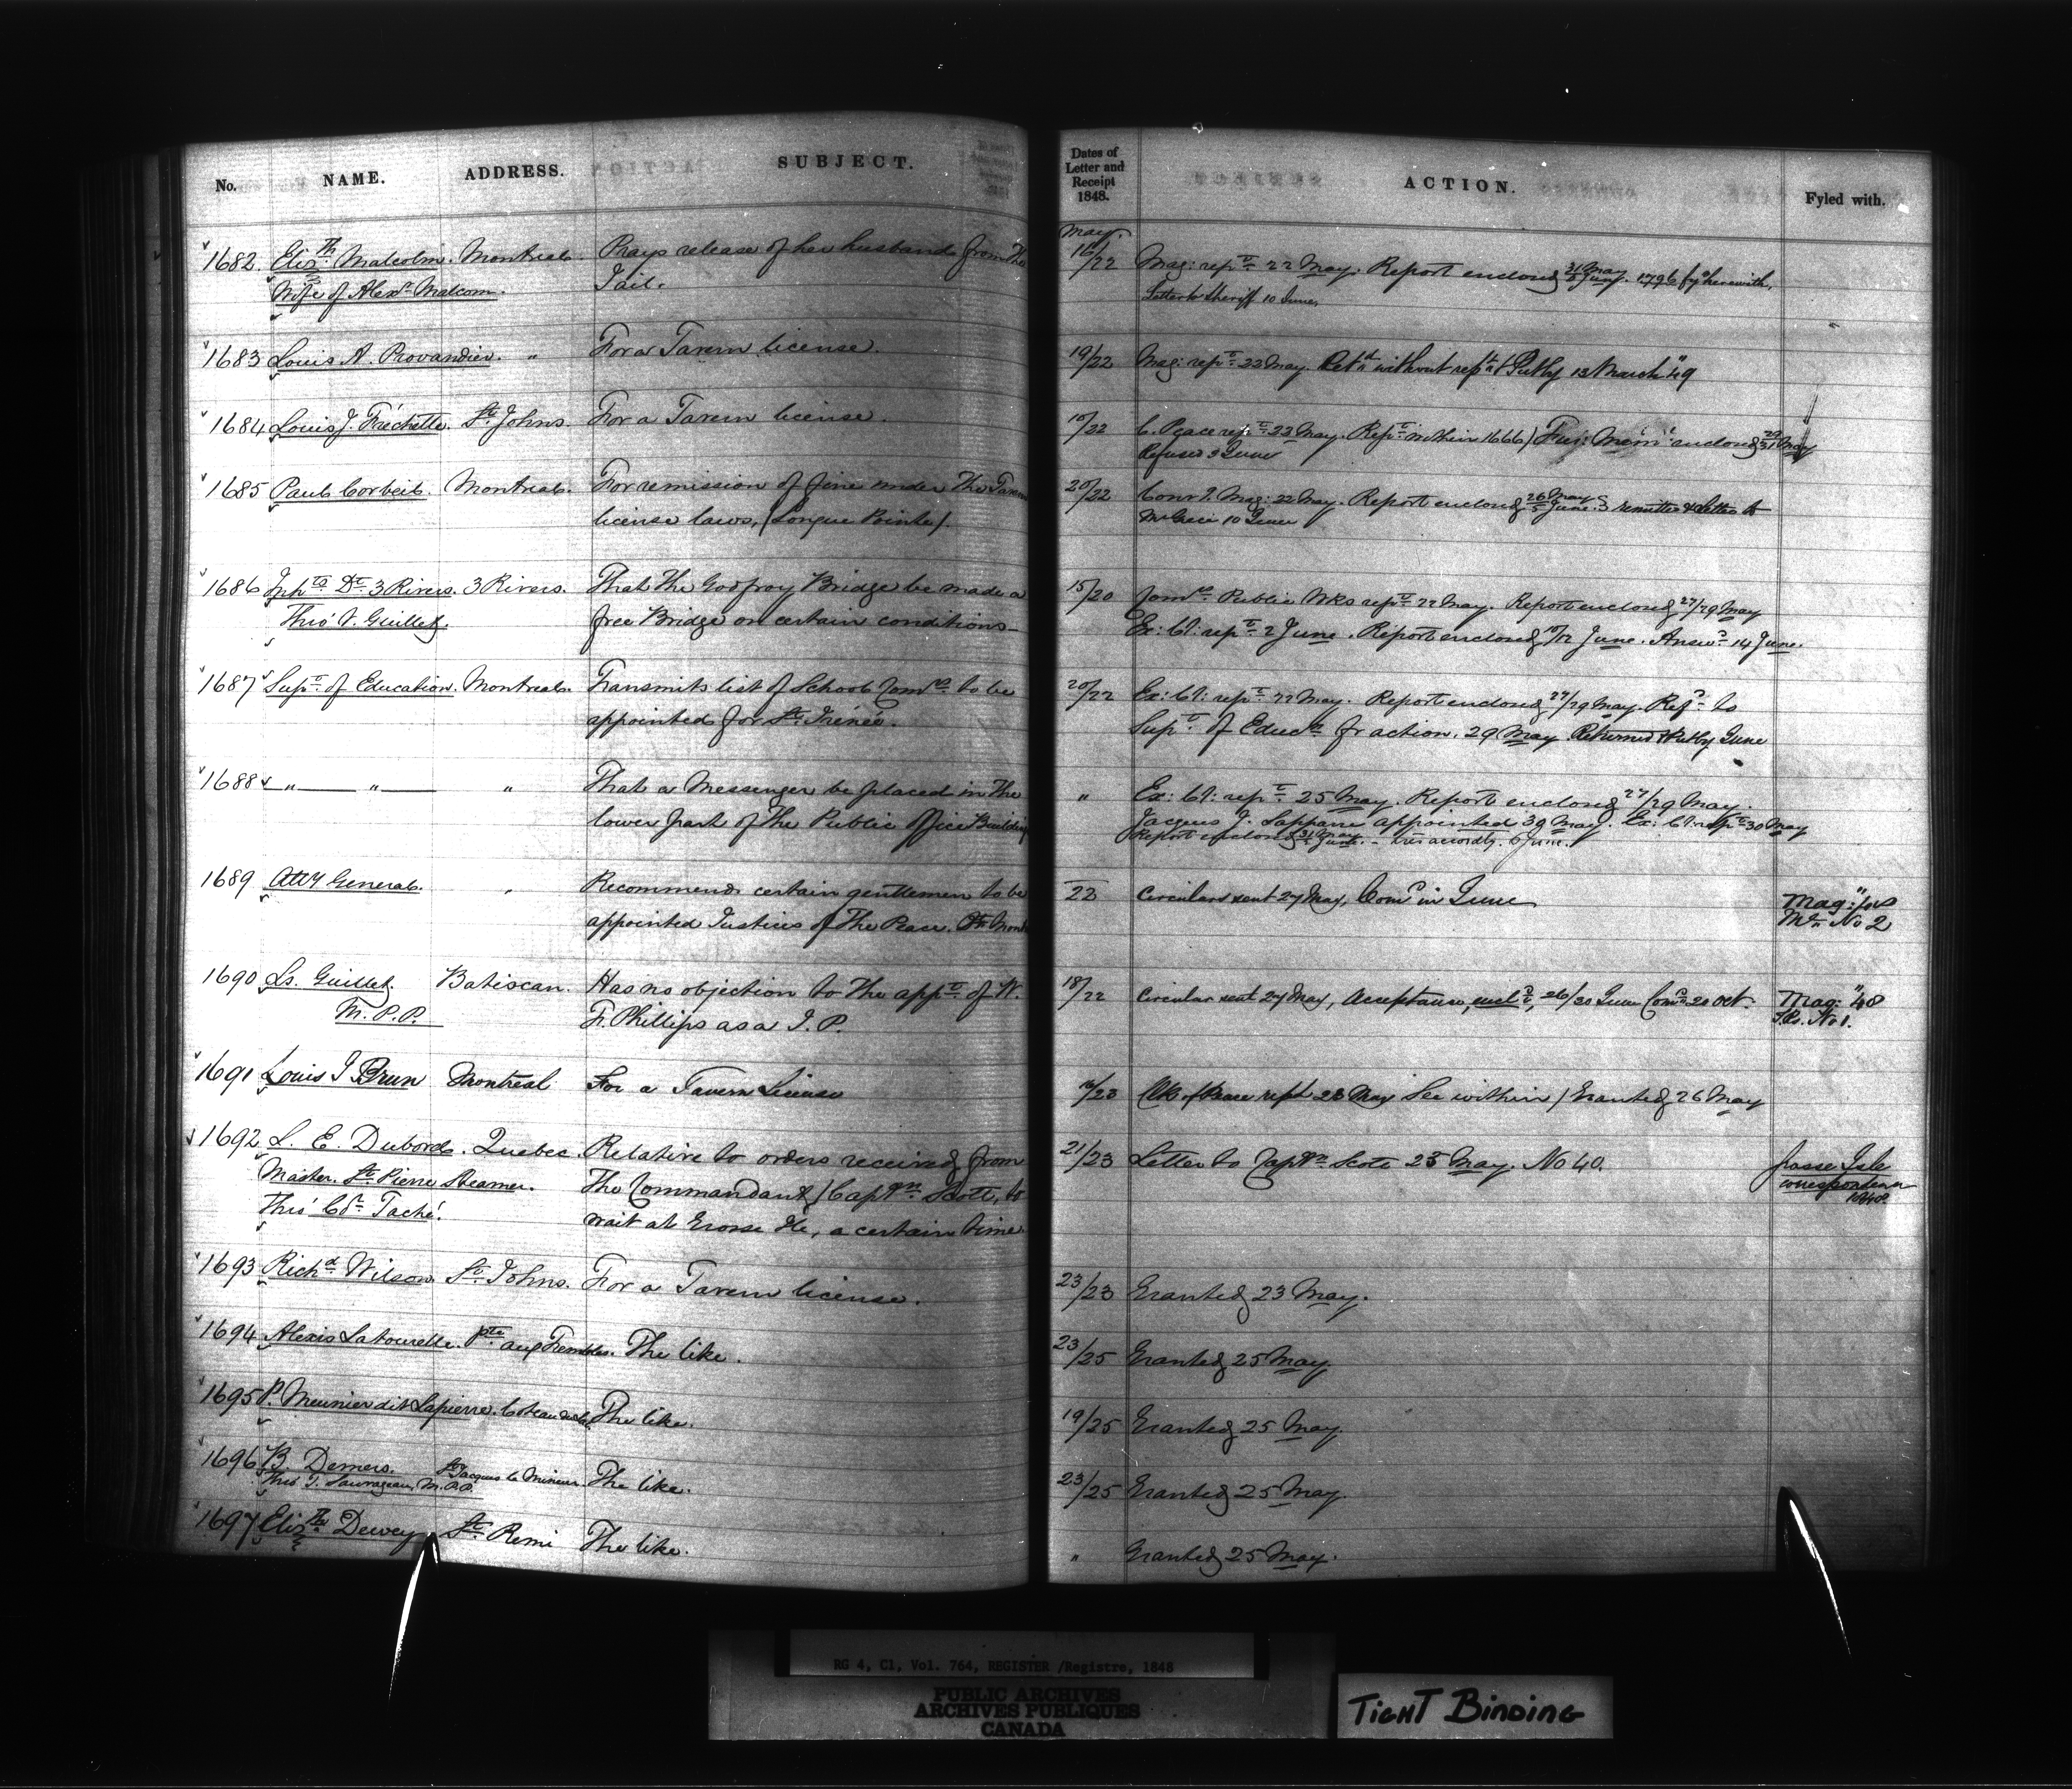 No. NAME. ADDRESS. SUBJECT. Dates of Letter and Receipt 1848. ACTION. Fyled with.
May.
1682. Eliz.th Malcolm. Montreal. Prays release of her husband from the 16/22 Mag: rep.t 22 May. Report enclosed 31 May 1796 fy.d herewith.
Wife of Alex.r Malcom. Jail. Letter to Sheriff 10 June.
1683 Louis A. Provandier. " For a Tavern license. 19/22 Mag: rep.t 22 May. Ret.d without rep.t 13 March "49
1684 Louis J. Fréchette. St. Johns. For a Tavern license. 19/22 C. Peace rep.t 23 May. Rep.t within 1666 / enclosed 29/31 May
Refused 3 June
1685 Paul Corbeil. Montreal. For remission of fine under the Tavern 20/22 Mag: 22 May. Report enclosed 26 May 5 June. remitted & letter to
license laws, (Longue Pointe). 10 June
1686 3 Rivers. 3 Rivers. That the Godfroy Bridge be made a 15/20 Com.rs Public Wks rep.t 22 May. Report enclosed 27/29 May
Thro' V. Guillet. free Bridge on certain conditions Ex: Cl: rep.t 2 June. Report enclosed 10/12 June. Answ.d 14 June.
1687 Sup.t of Education. Montreal. Transmits list of School Com.rs to be 20/22 Ex: Cl: rep.t 22 May. Report enclosed 27/29 May. Ref.d to
appointed for St. Irénée. Sup.t of Educ.n for action. 29 May Returned June
1688 " " " That a Messenger be placed in the " Ex: Cl: rep.t 25 May. Report enclosed 27/29 May.
lower part of the Public Office Building Jacques J. appointed 30 May. Ex: Cl: rep.t 30 May
Report enclosed 31 May June. 6 June.
1689 Atty General. " Recommends certain gentlemen to be 22 Circulars sent 27 May, Com.n in June Mag:
appointed Justices of the Peace. No 2
1690 Ls. Guillet. Batiscan. Has no objection to the app.t of W. 18/22 Circular sent 27 May, Acceptance, encl.d, 26/30 June Com.n 20 Oct. Mag: "48
M.P.P. F. Phillips as a J.P. No 1.
1691 Louis J Brun Montreal For a Tavern License /23 Clk of Peace rept 23 May See within / Granted 26 May
1692 L. E. Dubord. Quebec. Relative to orders received from 21/23 Letter to Capt.n Scott 25 May. No 40. Grosse Isle
Master. St. Pierre Steamer. the Commandant (Capt.n Scott, to correspondence
Thro' Taché. wait at Grosse Ile, a certain time. 1848
1693 Rich.d Wilson. St. Johns. For a Tavern license. 23/23 Granted 23 May.
1694 Alexis Latourelle. Pte aux Trembles. The like. 23/25 Granted 25 May.
1695 P. Meunier dit Lapierre. Coteau du Lac The like. 19/25 Granted 25 May.
1696 B. Demers. St. Jacques le Mineur. The like. 23/25 Granted 25 May.
Thro' T. Sauvageau, M.P.P.
1697 Eliz.th Dewey St. Remi The like. " Granted 25 May.
RG 4, C1, Vol. 764, REGISTER /Registre, 1848
PUBLIC ARCHIVES
ARCHIVES PUBLIQUES
CANADA
TIGHT BINDING